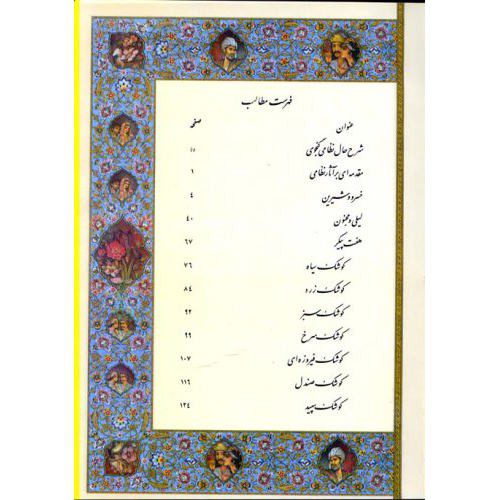 فهرست مطالب
عنوان صفحه
شرح حال نظامی گنجوی
مقدمه‌ای بر آثار نظامی ۱
خسرو و شیرین ۴
لیلی و مجنون ۴۰
هفت پیکر ۶۷
کوشک سیاه ۷۶
کوشک زرد ۸۴
کوشک سبز ۹۲
کوشک سرخ ۹۹
کوشک فیروزه‌ای ۱۰۷
کوشک صندل ۱۱۶
کوشک سپید ۱۲۴